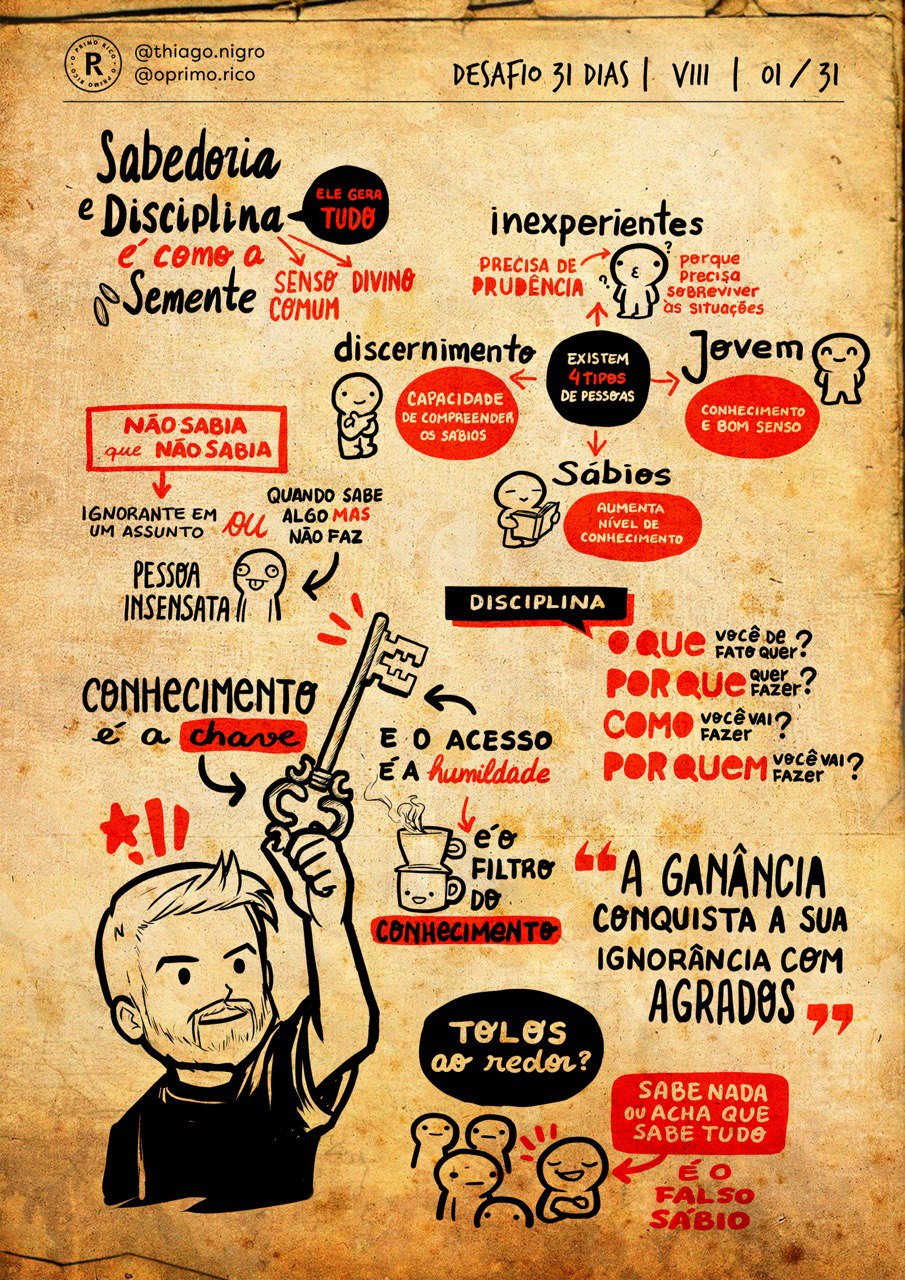 O PRIMO RICO · O PRIMO RICO ·
R
@thiago.nigro
@oprimo.rico
DESAFIO 31 DIAS | VIII | 01 / 31
Sabedoria
e Disciplina
é como a
Semente
ELE GERA
TUDO
SENSO
COMUM
DIVINO
inexperientes
PRECISA DE
PRUDÊNCIA
? ?
porque
precisa
sobreviver
às situações
discernimento
CAPACIDADE
DE COMPREENDER
OS SÁBIOS
EXISTEM
4 TIPOS
DE PESSOAS
Jovem
CONHECIMENTO
E BOM SENSO
Sábios
AUMENTA
NÍVEL DE
CONHECIMENTO
NÃO SABIA
que NÃO SABIA
IGNORANTE EM
UM ASSUNTO
OU
QUANDO SABE
ALGO MAS
NÃO FAZ
PESSOA
INSENSATA
DISCIPLINA
O QUE VOCÊ DE FATO QUER?
POR QUE QUER FAZER?
COMO VOCÊ VAI FAZER?
POR QUEM VOCÊ VAI FAZER?
CONHECIMENTO
é a chave
E O ACESSO
É A humildade
É O
FILTRO
DO
CONHECIMENTO
“A GANÂNCIA
CONQUISTA A SUA
IGNORÂNCIA COM
AGRADOS”
TOLOS
ao redor?
SABE NADA
OU ACHA QUE
SABE TUDO
É O
FALSO
SÁBIO